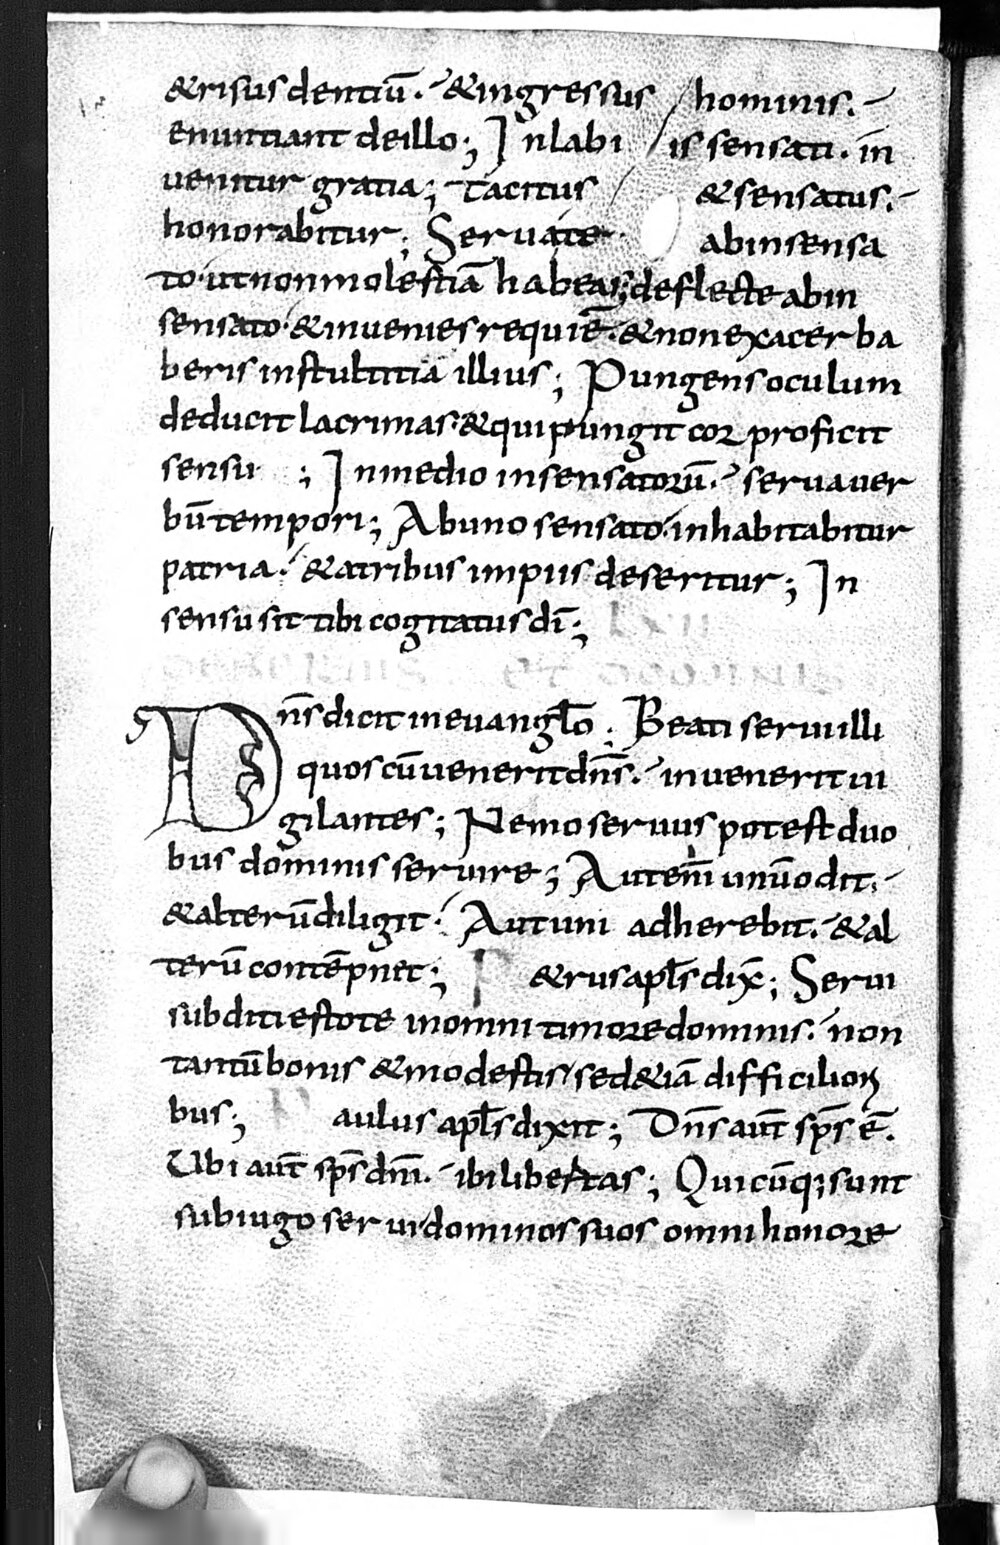 &risus dentiū. &ingressus hominis.
enuntiant deillo; Inlabi is sensati. in̄
uenitur gratia; tacitus &sensatus.
honorabitur; Seruate abinsensa
to. utnonmolestiā habeas; deflecte abin
sensato. &inuenies requiē. &nonexacerba
beris instultitiā illius; Pungens oculum
deducit lacrimas. &quipungit cor proficit
sensu ; Inmedio insensatorū. seruauer
bū tempori; Abuno sensato. inhabitabitur
patria. &atribus impiis deseritur; In
sensu sit tibi cogitatus dī; LXII
DE SERVIS ET DOMINIS
Dn̄s dicit ineuangl̄o; Beati serui illi
quos cū uenerit dn̄s. inuenerit ui
gilantes; Nemo seruus potest duo
bus dominis seruire; Autem̄ unū odit.
&alterū diligit. Aut uni adherebit. &al
terū contēpnet; P &rus apl̄s dix̄; Serui
subditi estote inomni timore dominis. non
tantū bonis &modestis sed&iā difficilior
bus; P aulus apl̄s dixit; Dn̄s aūt sp̄s ē.
Ubi aūt sp̄s dn̄i. ibi libertas; Quicūq; sunt
subiugo serui dominos suos omni honore